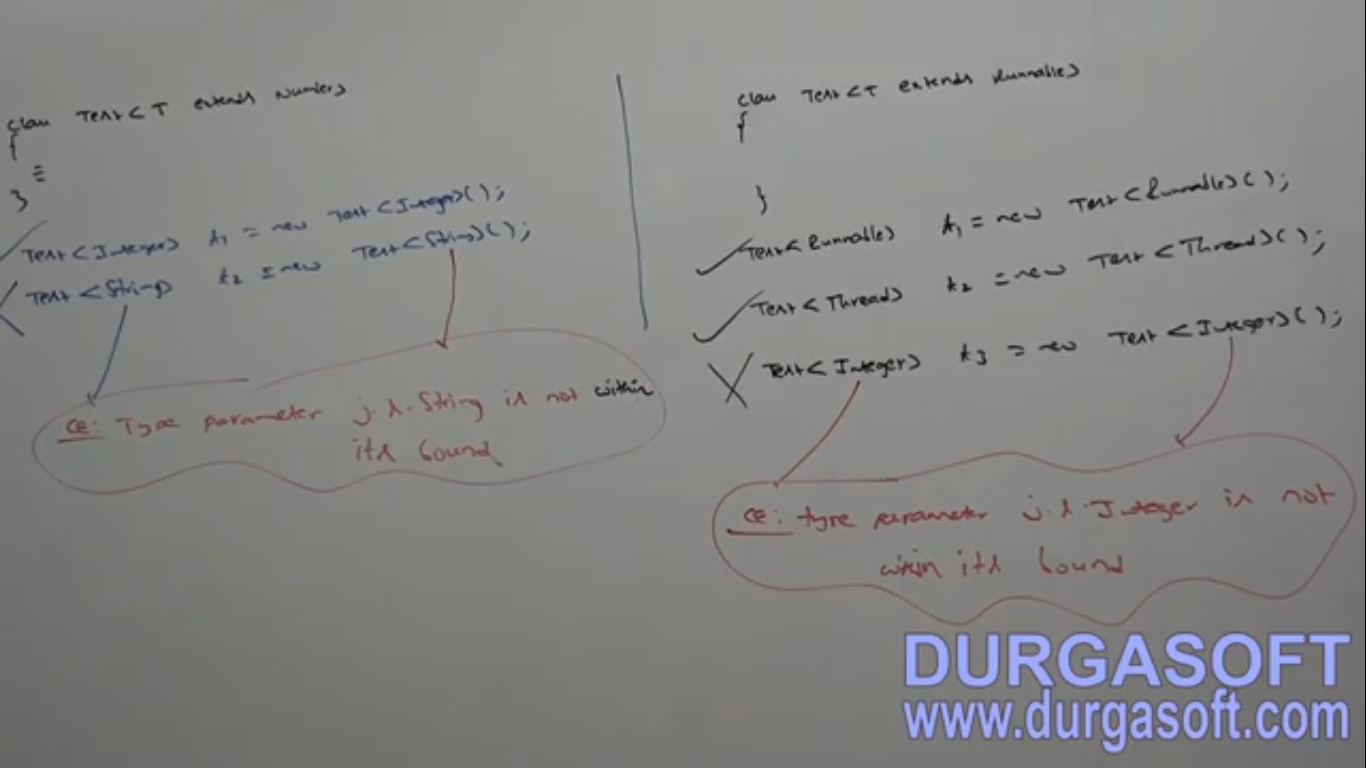 class Test<T extends Number>
{
≡
}
Test<Integer> t1 = new Test<Integer>();
Test<String> t2 = new Test<String>();
CE: Type parameter j.l.String is not within
its bound
class Test<T extends Runnable>
{
}
Test<Runnable> t1 = new Test<Runnable>();
Test<Thread> t2 = new Test<Thread>();
Test<Integer> t3 = new Test<Integer>();
CE: type parameter j.l.Integer is not
within its bound
DURGASOFT
www.durgasoft.com